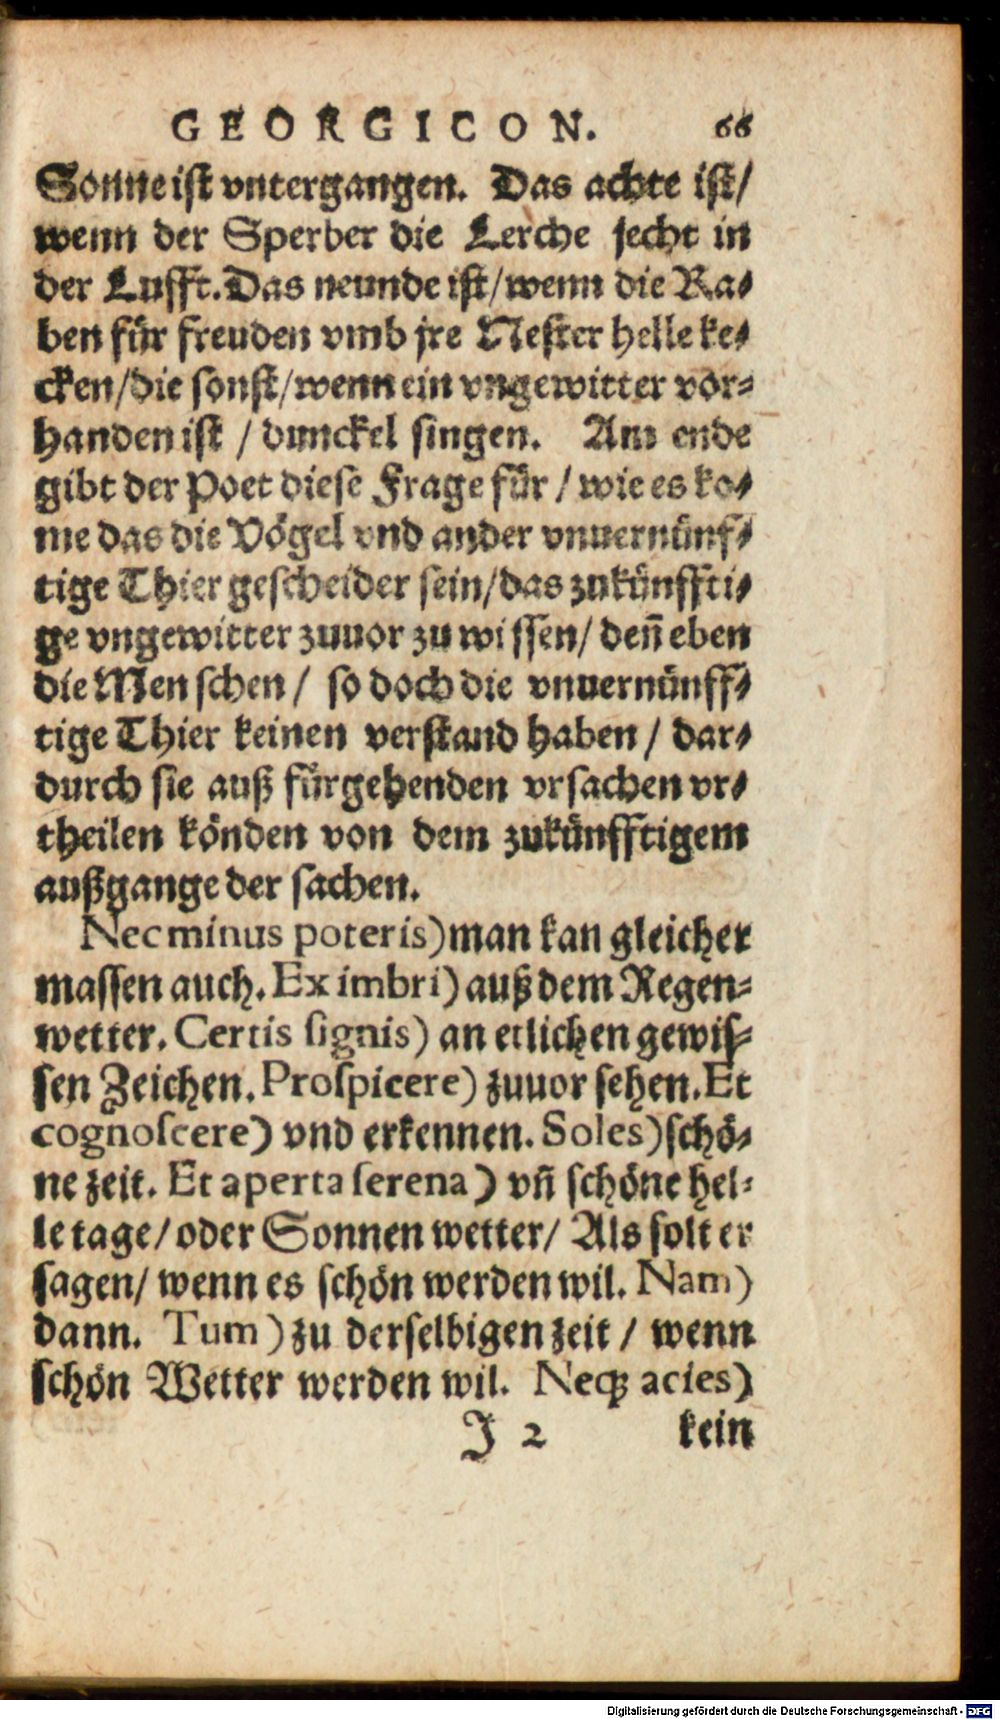 GEORGICON. 66
Sonne ist vntergangen. Das achte ist/
wenn der Sperber die Lerche jecht in
der Lufft. Das neunde ist/wenn die Ra⸗
ben für freuden vmb jre Nester helle ke⸗
cken/die sonst/wenn ein vngewitter vor⸗
handen ist / dunckel singen. Am ende
gibt der Poet diese Frage für / wie es ko⸗
me das die Vögel vnd ander vnuernünf⸗
tige Thier gescheider sein/das zukünffti⸗
ge vngewitter zuuor zu wissen/ deñ eben
die Menschen / so doch die vnuernünff⸗
tige Thier keinen verstand haben / dar⸗
durch sie auß fürgehenden vrsachen vr⸗
theilen könden von dem zukünfftigem
außgange der sachen.
Nec minus poteris) man kan gleicher
massen auch. Ex imbri) auß dem Regen⸗
wetter. Certis signis) an etlichen gewis⸗
sen Zeichen. Prospicere) zuuor sehen. Et
cognoscere) vnd erkennen. Soles) schö⸗
ne zeit. Et aperta serena) vñ schöne hel⸗
le tage/oder Sonnen wetter/ Als solt er
sagen/ wenn es schön werden wil. Nam)
dann. Tum) zu derselbigen zeit / wenn
schön Wetter werden wil. Neqꝫ acies)
J 2 kein
Digitalisierung gefördert durch die Deutsche Forschungsgemeinschaft - DFG